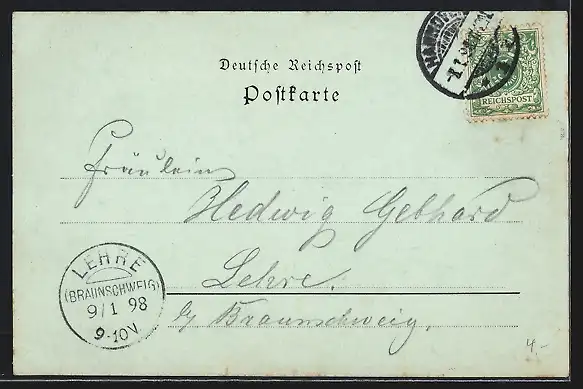 HANNOVER
REICHSPOST
Deutsche Reichspost
Postkarte
Fräulein
Hedwig Gebhard
Lehre.
b/ Braunschweig.
LEHRE
(BRAUNSCHWEIG)
9/1 98
9-10V
4.-